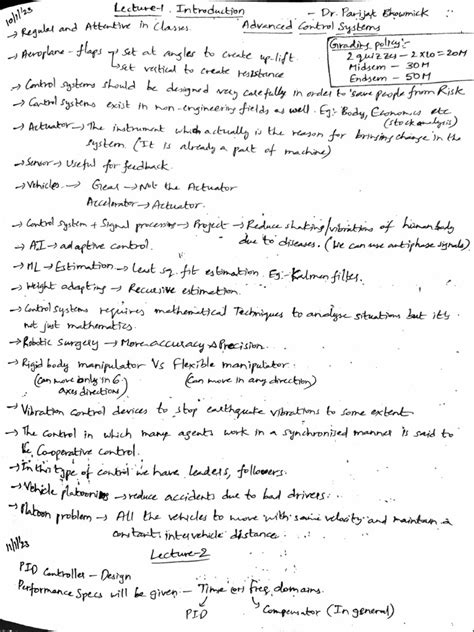 10/1/23
Lecture-1. Introduction - Dr. Parijat Bhowmick
Advanced Control Systems
→ Regular and Attentive in Classes.
Grading policy:-
2 quizzes - 2x10 = 20M
Midsem - 30M
Endsem - 50M
→ Aeroplane - flaps → Set at angles to create up-lift
→ Set vertical to create resistance
→ Control systems should be designed very carefully in order to save people from Risk
→ Control systems exist in non-engineering fields as well. Eg:- Body, Economics etc
(stock analysis)
→ Actuator → The instrument which actually is the reason for bringing change in the
system. (It is already a part of machine)
→ Sensor → Useful for feedback.
→ Vehicles. → Gear → Not the Actuator
Accelerator → Actuator.
→ Control system + Signal processing → Project → Reduce shaking/vibrations of human body
due to diseases. (We can use antiphase signals)
→ AI → adaptive control.
→ ML → Estimation → Least sq. fit estimation. Eg:- Kalmen filter.
→ Weight adapting → Recursive estimation.
→ Control systems requires mathematical Techniques to analyse situations but it's
not just mathematics.
→ Robotic Surgery → More accuracy & Precision.
→ Rigid body manipulator Vs Flexible manipulator.
(Can move only in 6 (Can move in any direction)
axes directions)
→ Vibration control devices to stop earthquake vibrations to some extent
→ The control in which many agents work in a synchronised manner is said to
be Co-operative control.
→ In this type of control we have leaders, followers.
→ Vehicle platooning → reduce accidents due to bad drivers.
→ Platoon problem → All the vehicles to move with same velocity and maintain a
constant intervehicle distance.
11/1/23
Lecture-2
PID Controller - Design
Performance Specs will be given - Time or freq. domains.
PID Compensator (In general)